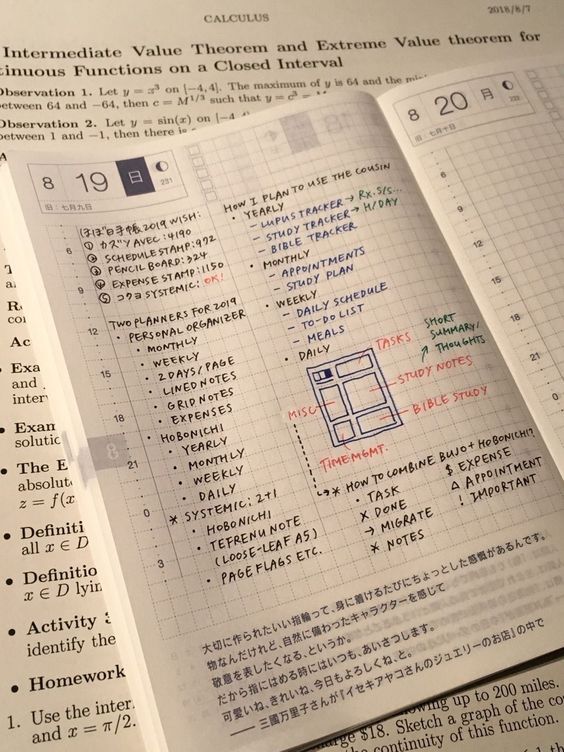 CALCULUS
2018/8/7
Intermediate Value Theorem and Extreme Value theorem for
tinuous Functions on a Closed Interval
Observation 1. Let y = x³ on [−4, 4]. The maximum of y is 64 and the
etween 64 and −64, then c = M^{1/3} such that y = c³ =
Observation 2. Let y = sin(x) on
between 1 and −1, then there is
8 19 日
231
旧:七月九日
ほぼ日手帳2019 WISH:
① カズン AVEC: 4190
② SCHEDULE STAMP: 972
③ PENCIL BOARD: 324
④ EXPENSE STAMP: 1150
⑤ コクヨ SYSTEMIC: OK!
TWO PLANNERS FOR 2019
• PERSONAL ORGANIZER
• MONTHLY
• WEEKLY
• 2 DAYS/PAGE
• LINED NOTES
• GRID NOTES
• EXPENSES
• HOBONICHI
• YEARLY
• MONTHLY
• WEEKLY
• DAILY
* SYSTEMIC: 2+1
• HOBONICHI
• TEFRENU NOTE
(LOOSE-LEAF A5)
• PAGE FLAGS ETC.
6
9
12
15
18
8
21
0
3
HOW I PLAN TO USE THE COUSIN
• YEARLY
– LUPUS TRACKER → Rx, S/S...
– STUDY TRACKER → H/DAY
– BIBLE TRACKER
• MONTHLY
– APPOINTMENTS
– STUDY PLAN
• WEEKLY
– DAILY SCHEDULE
– TO-DO LIST
– MEALS
• DAILY
SHORT
SUMMARY/
THOUGHTS
TASKS
STUDY NOTES
MISC
BIBLE STUDY
TIME MGMT.
* HOW TO COMBINE BUJO + HOBONICHI?
• TASK
X DONE
→ MIGRATE
* NOTES
$ EXPENSE
△ APPOINTMENT
! IMPORTANT
大切に作られたいい指輪って、身に着けるたびにちょっとした感慨があるんです。
物なんだけれど、自然に備わったキャラクターを感じて
敬意を表したくなる、というか。
だから指にはめる時にはいつも、あいさつします。
可愛いね、きれいね、今日もよろしくね、と。
―― 三國万里子さんが『イセキアヤコさんのジュエリーのお店』の中で
8 20 月
旧:七月十日
6
9
12
15
18
21
0
Ac
• Exa
and
inter
• Exam
solutic
• The E
absolut
z = f(x
• Definiti
all x ∈ D
• Definitio
x ∈ D lyin
• Activity
identify the
• Homework
1. Use the inter
and x = π/2.
wing up to 200 miles.
rge $18. Sketch a graph of the co
continuity of this function.